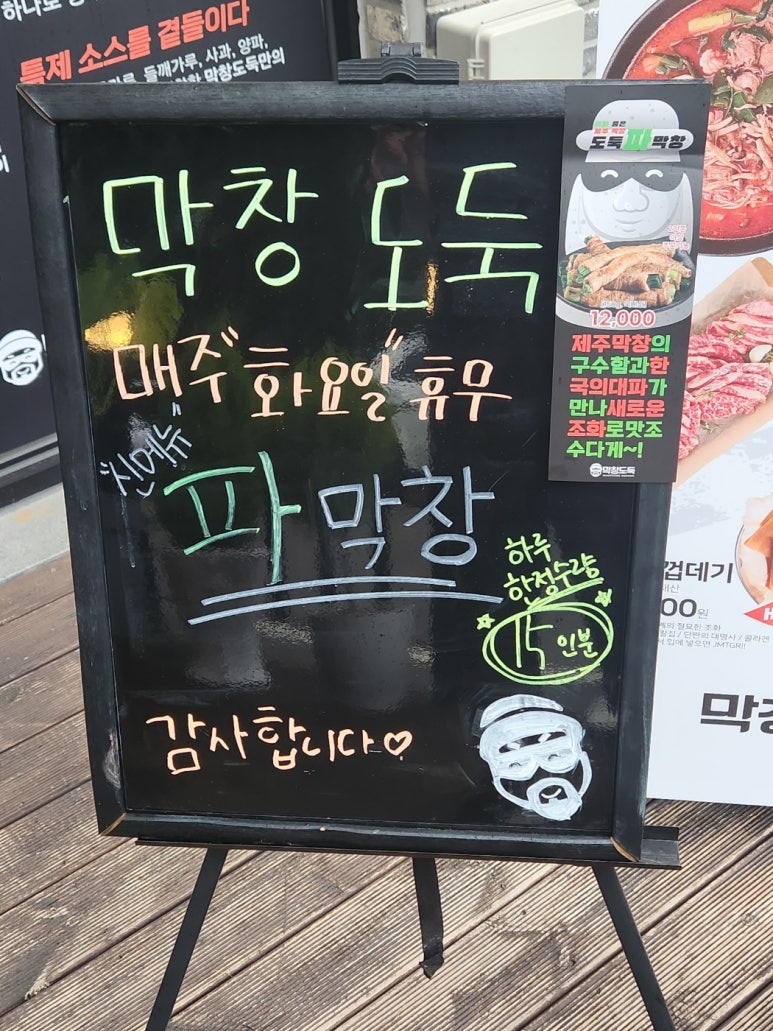 특제 소스를 곁들이다
들깨가루, 사과, 양파,
막창도둑만의
막창 도둑
매주 "화요일" 휴무
"신메뉴"
파막창
하루
한정수량
15인분
감사합니다♡
도둑파막창
12,000
제주막창의
구수함과한
국의대파가
만나새로운
조화로맛조
수다게~!
막창도둑
껍데기
00원